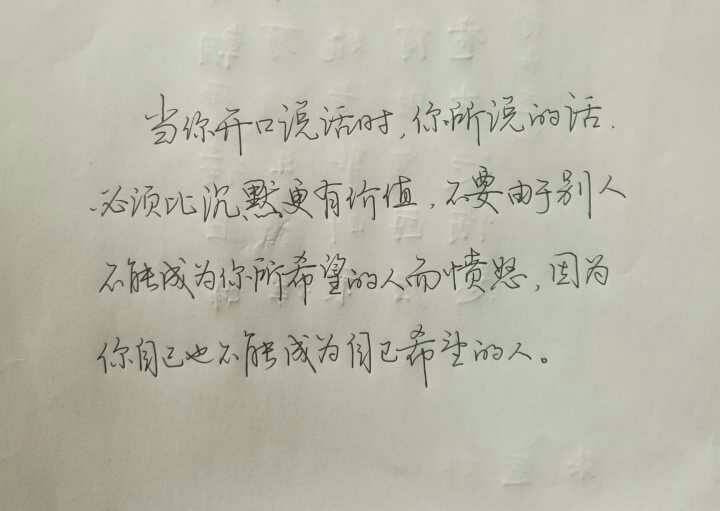 当你开口说话时,你所说的话.
必须比沉默更有价值,不要由于别人
不能成为你所希望的人而愤怒,因为
你自己也不能成为自己希望的人。